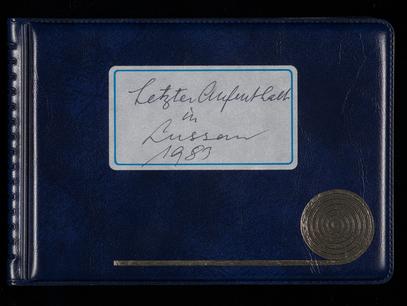 Letzter Aufenthalt
in
Lussan
1983